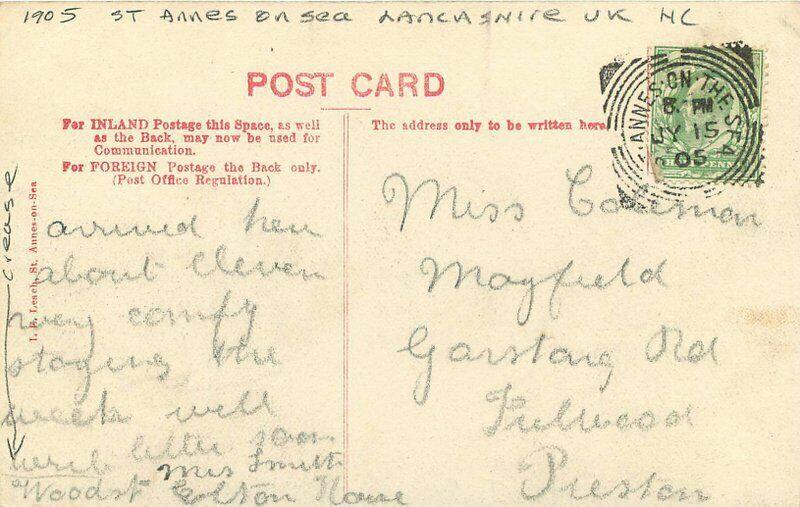 1905 ST ANNES ON SEA LANCASHIRE UK HC
POST CARD
For INLAND Postage this Space, as well
as the Back, may now be used for
Communication.
For FOREIGN Postage the Back only.
(Post Office Regulation.)
The address only to be written here.
ANNES-ON-THE-SEA
8- PM
JY 15
05
crease
Leach, St. Annes-on-Sea
arrived here
about eleven
very comfy
staying the
week will
letter soon
Mrs Smith
Woodst Elston House
Miss Coleman
Mayfield
Garstang Rd
Fulwood
Preston